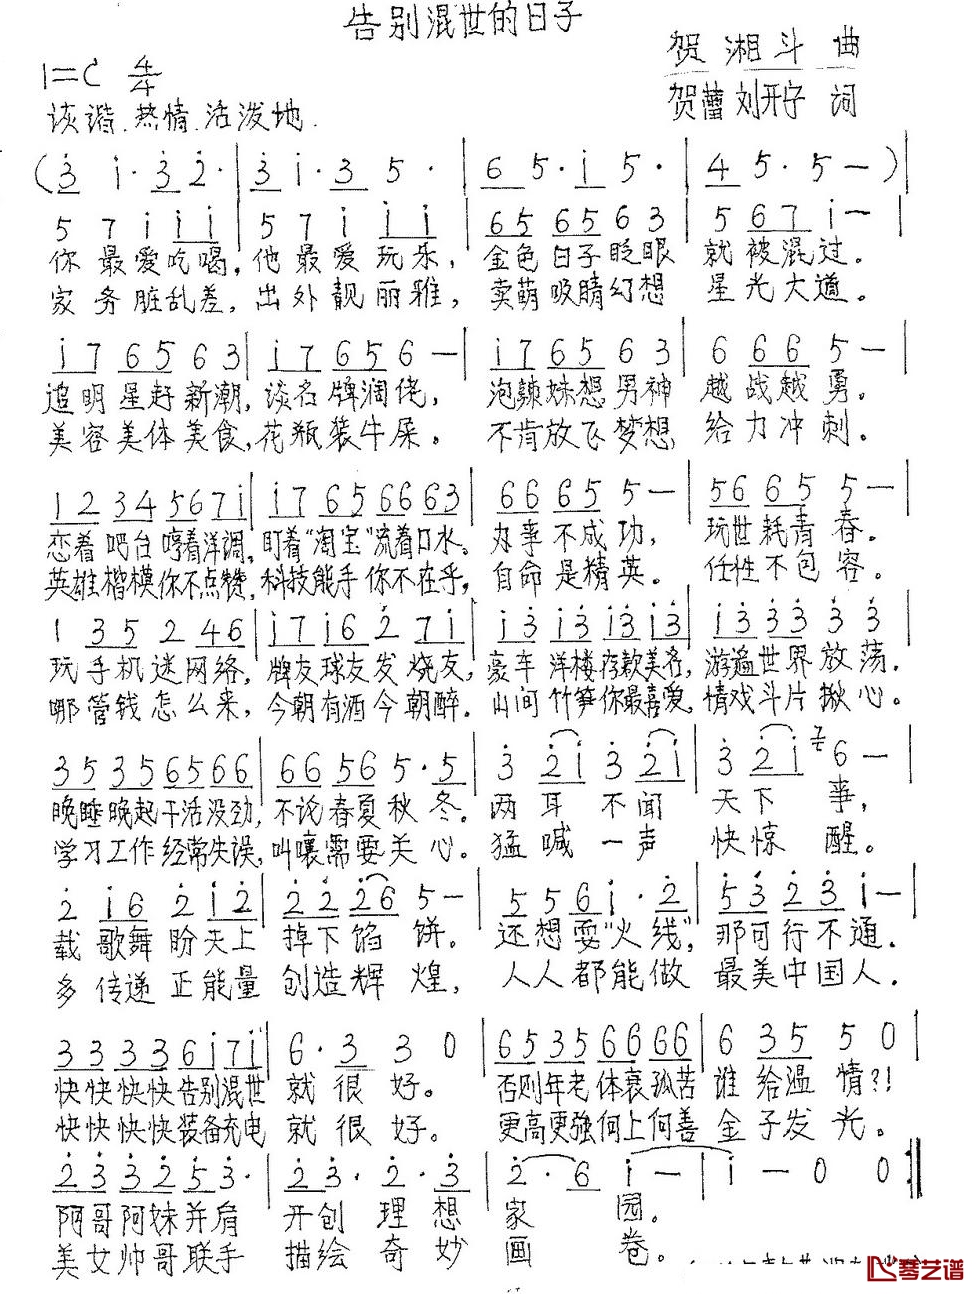 告别混世的日子
贺湘斗 曲
1=C 4/4
贺蕾 刘开宇 词
诙谐.热情.活泼地.
(3̇ i·3̇ 2̇·|3̇ i·3̇ 5·|6 5·i 5·|4 5·5—)|
5 7 i i i|5 7 i i i|65 65 6 3|5 67 i—|
你最爱吃喝,他最爱玩乐,金色日子眨眼 就被混过.
家务脏乱差,出外靓丽雅,卖萌吸睛幻想 星光大道。
i7 65 6 3|i7 65 6—|i7 65 6 3|6 66 5—|
追明星赶新潮,谈名牌阔佬,泡辣妹想男神 越战越勇。
美容美体美食,花瓶装牛屎。不肯放飞梦想,给力冲刺。
12 34 56 7i|i7 65 66 63|66 65 5—|56 65 5—|
恋着吧台哼着洋调,盯着“淘宝”流着口水。办事不成功,玩世耗青春。
英雄楷模你不点赞,科技能手你不在乎,自命是精英。任性不包容。
1 35 2 46|i7 i6 2̇ 7i|i3̇ i3̇ i3̇ i3̇|i3̇ 3̇3̇ 3̇ 3̇|
玩手机迷网络,牌友球友发烧友,豪车洋楼存款美名,游遍世界放荡.
哪管钱怎么来,今朝有酒今朝醉.山间竹笋你最喜爱,情戏斗片揪心。
35 35 65 66|66 56 5·5|3̇ 2̇i 3̇ 2̇i|3̇ 2̇i 6—|
晚睡晚起干活没劲,不论春夏秋冬。两耳不闻 天下事,
学习工作经常失误,叫嚷需要关心。猛喊一声 快惊醒。
2̇ i6 2̇ i2̇|2̇2̇ 2̇6 5—|5 56 i·2̇|5̇3̇ 2̇3̇ i—|
载歌舞盼天上 掉下馅饼。还想耍“火线”,那可行不通.
多传递正能量 创造辉煌,人人都能做 最美中国人.
33 33 6i 7i|6·3 3 0|65 35 66 66|6 35 5 0|
快快快快告别混世 就很好。否则年老体衰孤苦 谁给温情?!
快快快快装备充电 就很好。更高更强向上向善 金子发光。
2̇3̇ 3̇2̇ 5̇ 3̇·|2̇3̇·2̇·3̇|2̇·6 i—|i—0 0:|
阿哥阿妹并肩 开创理想 家园。
美女帅哥联手 描绘奇妙 画卷。
琴艺谱